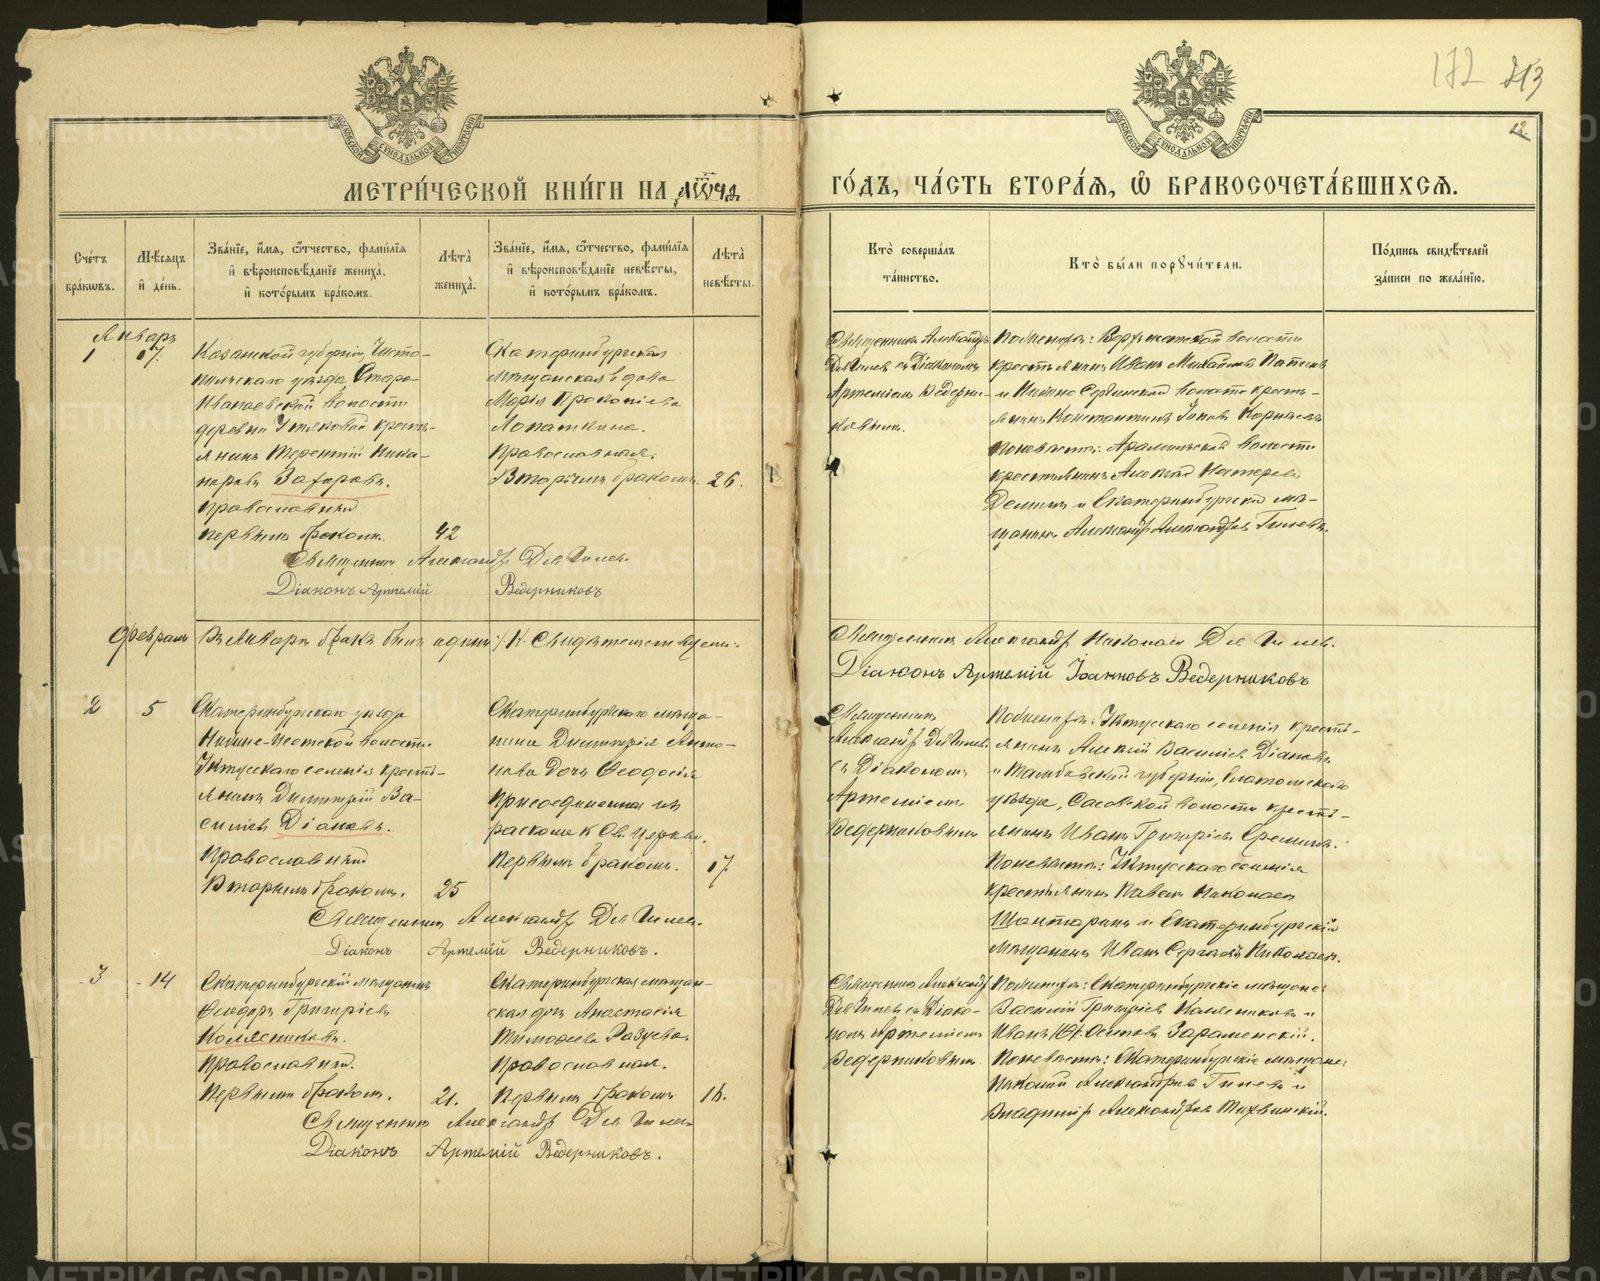 172 213
12
МОСКОВСКОЙ СУНОДАЛЬНОЙ ТИПОГРАФІИ
МОСКОВСКОЙ СУНОДАЛЬНОЙ ТИПОГРАФІИ
МЕТРИ́ЧЕСКОЙ КНИ́ГИ НА
ГО́ДЪ, ЧА́СТЬ ВТОРА́Я, Ѡ БРАКОСОЧЕТА́ВШИХСЯ.
Сче́тъ бра́кѡвъ.
Мѣ́сяцъ и де́нь.
Зва́нїе, и́мя, ѻ́тчество, фами́лїя
и҆ вѣроисповѣ́данїе жениха̀,
и҆ кото́рымъ бра́комъ.
Лѣ́та жениха̀.
Зва́нїе, и́мя, ѻ́тчество, фами́лїя
и҆ вѣроисповѣ́данїе невѣ́сты,
и҆ кото́рымъ бра́комъ.
Лѣ́та невѣ́сты.
Кто̀ соверша́лъ та́инство.
Кто̀ бы́ли поручи́тели.
По́дпись свидѣ́телей за́писи по жела́нїю.
Январь
1 17.
Казанской губерніи, Чисто-
польскаго уѣзда, Старо-
Ивановской волости
деревни
кресть-
янинъ Терентій Ника-
норовъ Захаровъ.
православный
первымъ бракомъ. 42
Екатеринбургская
мѣщанская вдова
Марія Прокопіева
Лопаткина.
Православная.
Вторымъ бракомъ. 26.
Священникъ Александръ
Девятовъ съ Діакономъ
Артеміемъ Ведерни-
ковымъ.
По женихѣ:
волости
крестьянинъ Иванъ Михайловъ
и Нижне-Сергинской волости кресть-
янинъ Константинъ
По невѣстѣ: Арамильской волости
крестьянинъ Алексѣй
и Екатеринбургскій мѣ-
щанинъ Александръ Александровъ Гилевъ.
Священникъ Александръ
Діаконъ Артемій Ведерниковъ
Февраль
Въ Январѣ бракъ былъ одинъ /1/.
Священникъ Александръ Николаевъ
Діаконъ Артемій Іоанновъ Ведерниковъ
2 5
Екатеринбургскаго уѣзда
Нижне-Исетской волости
Уктусскаго селенія кресть-
янинъ Димитрій Ва-
силіевъ Діановъ.
Православный
Вторымъ бракомъ. 25
Екатеринбургскаго мѣща-
нина Димитрія Анто-
нова дочь Ѳеодосія
присоединенная изъ
раскола к Св. Церкви.
Первымъ бракомъ. 17
Священникъ
Александръ
съ Діакономъ
Артеміемъ
Ведерниковымъ
По женихѣ: Уктусскаго селенія кресть-
янинъ Алексѣй Василіевъ Діановъ
и Тамбовской губерніи, Елатомскаго
уѣзда, Сасовской волости кресть-
янинъ Иванъ Григоріевъ Ереминъ.
По невѣстѣ: Уктусскаго селенія
крестьянинъ Павелъ Николаевъ
и Екатеринбургскій
мѣщанинъ Иванъ Сергѣевъ Николаевъ.
Священникъ Александръ
Діаконъ Артемій Ведерниковъ.
3 14
Екатеринбургскій мѣщанинъ
Ѳеодоръ Григоріевъ
Колясниковъ.
Православный.
Первымъ бракомъ. 21.
Екатеринбургская мѣщан-
ская дочь Анастасія
Тимофеева
Православная.
Первымъ бракомъ
Священникъ Александръ
съ Діако-
номъ Артеміемъ
Ведерниковымъ
По женихѣ: Екатеринбургскіе мѣщане
Василій Григоріевъ Колясниковъ и
Иванъ
По невѣстѣ: Екатеринбургскіе мѣщане:
Николай Александровъ Гилевъ и
Владиміръ Александровъ
Священникъ Александръ
Діаконъ Артемій Ведерниковъ.
METRIKI.GASO-URAL.RU